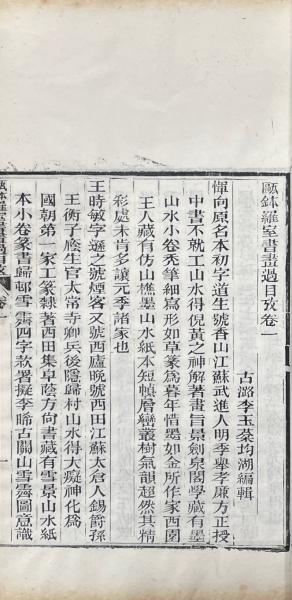 甌鉢羅室書畫過目攷卷一
古潞李玉棻均湖編輯
惲向原名本初字道生號香山江蘇武進人明季舉孝廉方正授
中書不就工山水得倪黃之神解著畫旨景劍泉閣學藏有墨
山水小卷禿筆細寫形如草篆為暮年惜墨如金所作家西園
王人藏有仿山樵墨山水紙本短幀層巒叢樹氣韻超然其精
彩處未肯多讓元季諸家也
王時敏字遜之號煙客又號西廬晚號西田江蘇太倉人錫爵孫
王衡子廕生官太常寺卿兵後隱歸村山水得大癡神化為
國朝第一家工篆隸著西田集卓蔭方向書藏有雪景山水紙
本小卷篆書歸邨雪霽四字款署擬李晞古關山雪霽圖意識
甌鉢羅室書畫過目攷 卷一
一